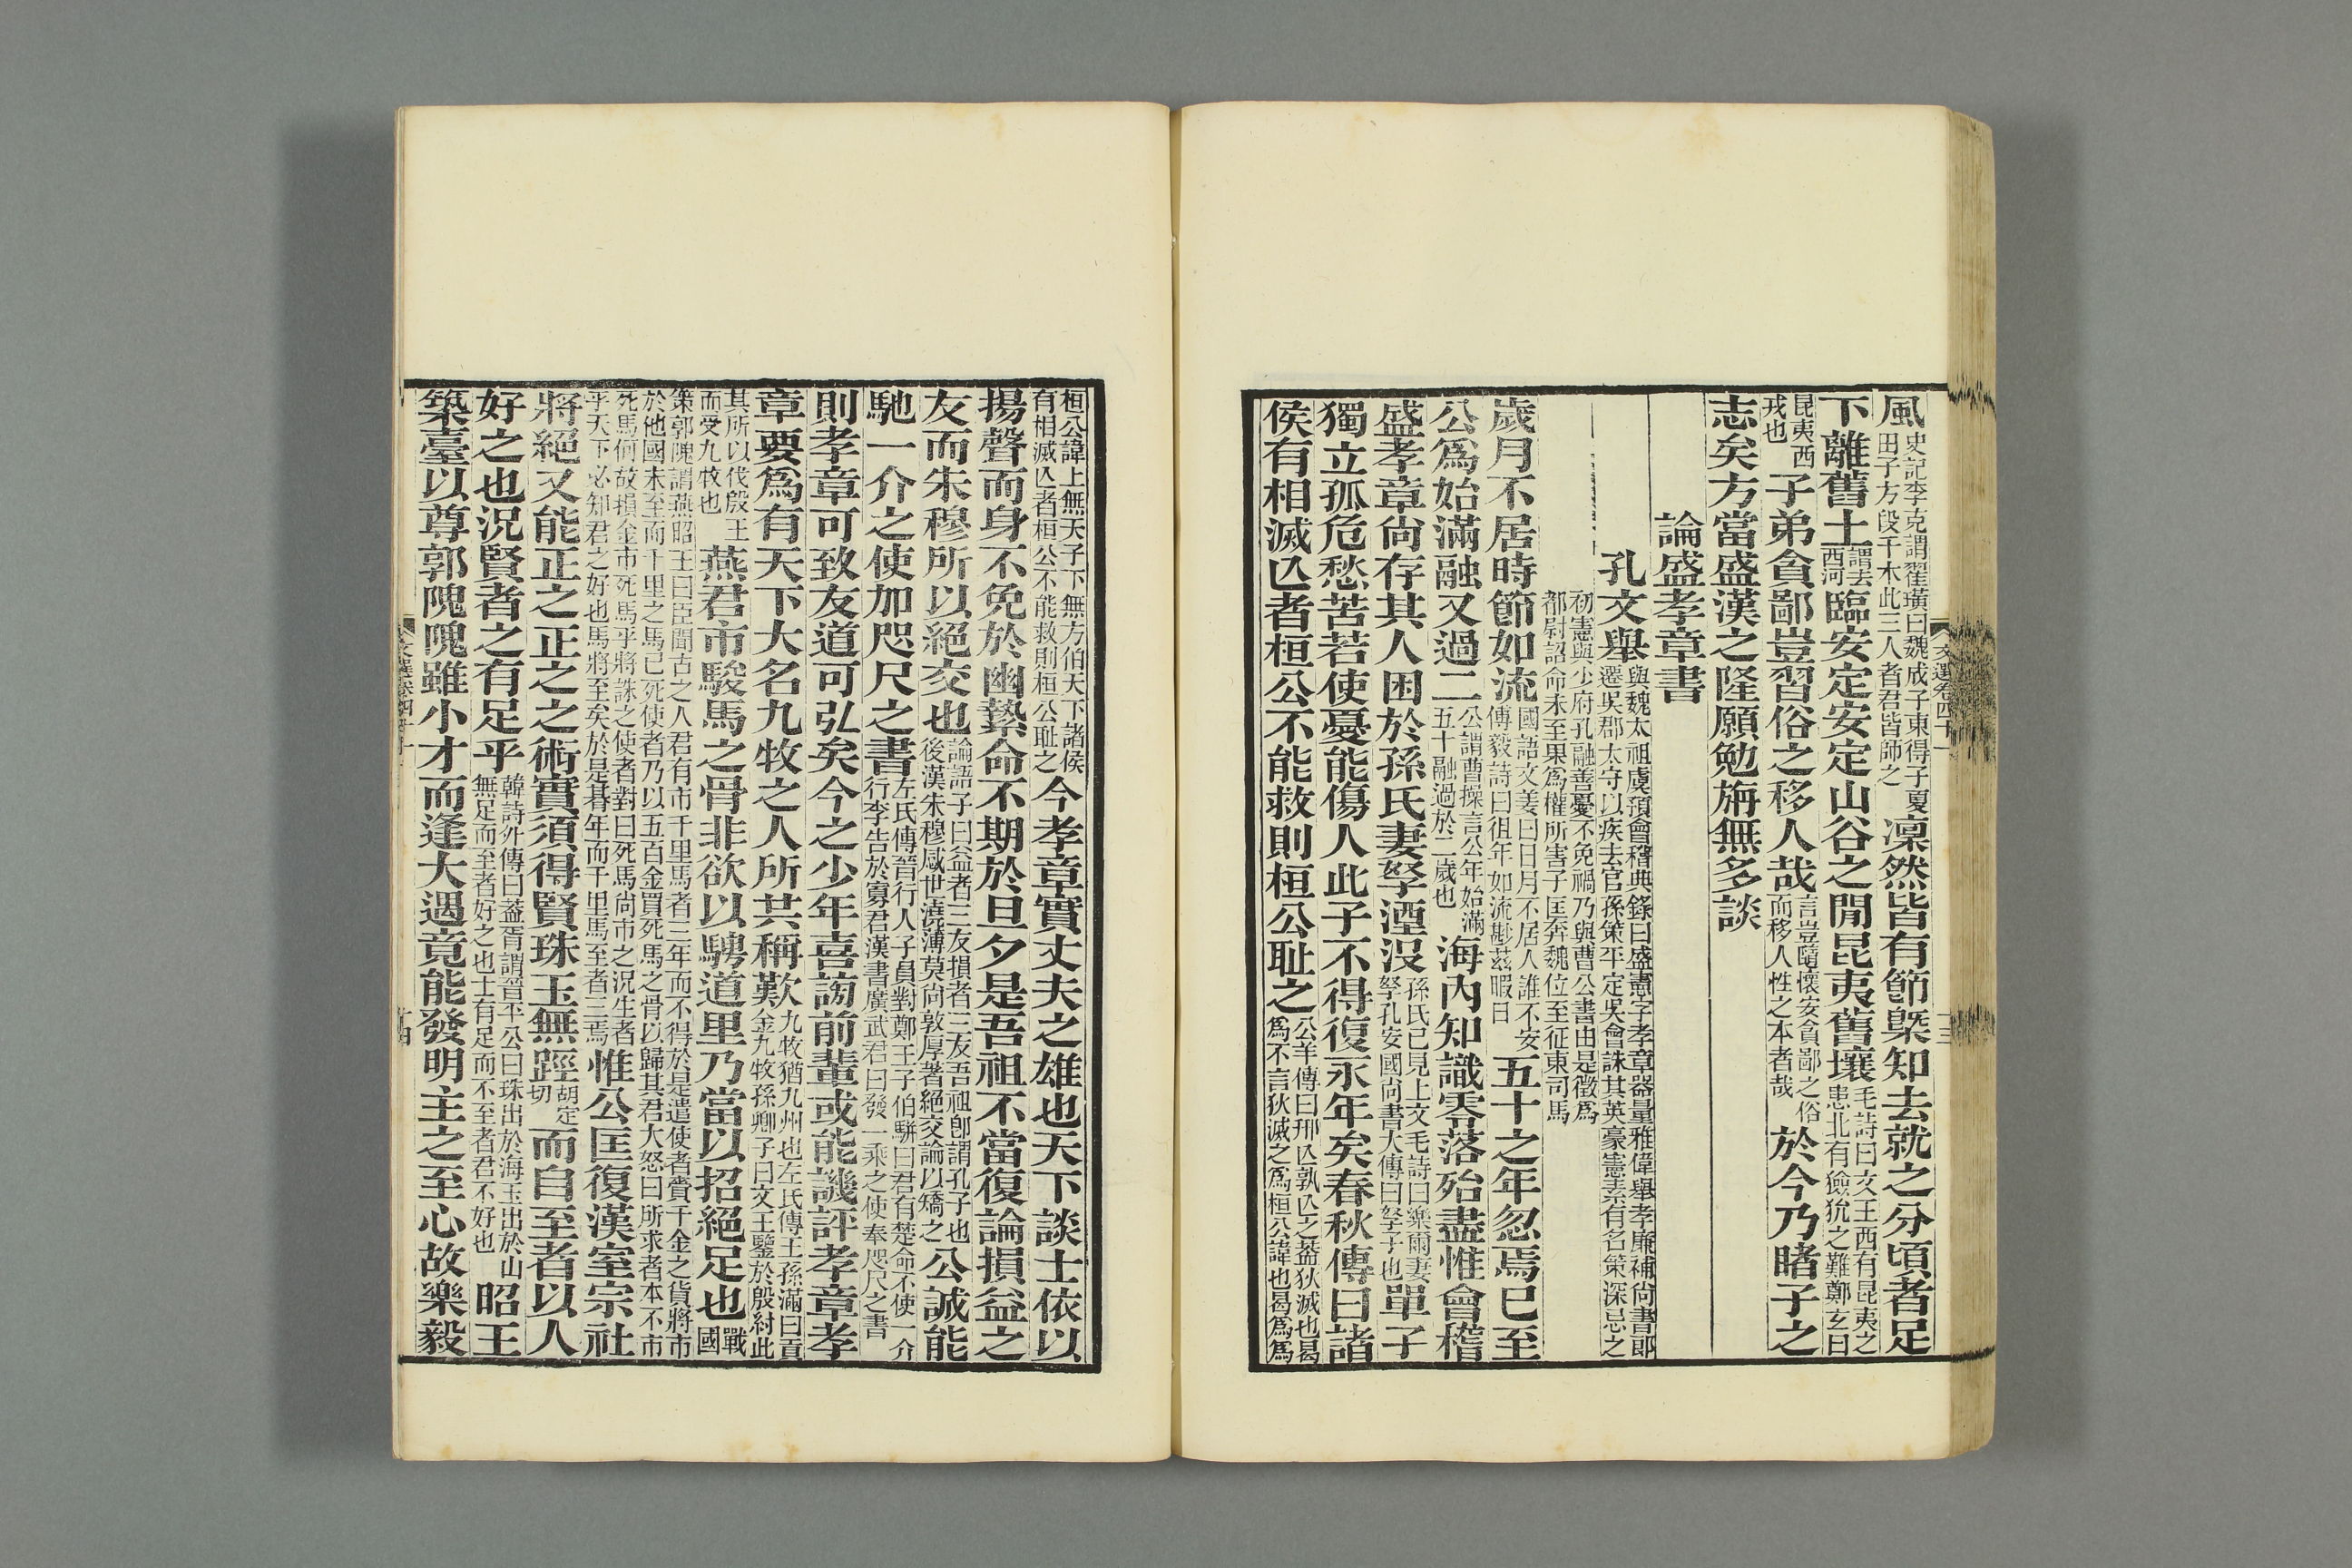 風史記李克謂翟璜曰魏成子東得子夏田子方段干木此三人者君皆師之凜然皆有節槩知去就之分頃者足
下離舊土謂去西河臨安定安定山谷之閒昆夷舊壤毛詩曰文王西有昆夷之患北有獫狁之難鄭玄曰
昆夷西戎也子弟貪鄙豈習俗之移人哉言豈隨懷安貪鄙之俗而移人性之本者哉於今乃睹子之
志矣方當盛漢之隆願勉旃無多談
論盛孝章書
孔文舉與魏太祖虞預會稽典錄曰盛憲字孝章器量雅偉舉孝廉補尚書郎遷吳郡太守以疾去官孫策平定吳會誅其英豪憲素有名策深忌之
初憲與少府孔融善憂不免禍乃與曹公書由是徵為都尉詔命未至果為權所害子匡奔魏位至征東司馬
歲月不居時節如流國語文姜曰日月不居人誰不安傅毅詩曰徂年如流尠茲暇日五十之年忽焉已至
公為始滿融又過二公謂曹操言公年始滿五十融過於二歲也海內知識零落殆盡惟會稽
盛孝章尚存其人困於孫氏妻孥湮沒孫氏已見上文毛詩曰樂爾妻孥孔安國尚書大傳曰孥子也單孑
獨立孤危愁苦若使憂能傷人此子不得復永年矣春秋傳曰諸
侯有相滅亾者桓公不能救則桓公耻之公羊傳曰邢亾孰亾之葢狄滅也曷為不言狄滅之為桓公諱也曷為為
桓公諱上無天子下無方伯天下諸侯有相滅亾者桓公不能救則桓公耻之今孝章實丈夫之雄也天下談士依以
揚聲而身不免於幽縶命不期於旦夕是吾祖不當復論損益之
友而朱穆所以絕交也論語子曰益者三友損者三友吾祖卽謂孔子也後漢朱穆感世澆薄莫尚敦厚著絕交論以矯之公誠能
馳一介之使加咫尺之書左氏傳晉行人子員對鄭王子伯駢曰君有楚命不使一介行李告於寡君漢書廣武君曰發一乘之使奉咫尺之書
則孝章可致友道可弘矣今之少年喜謗前輩或能譏評孝章孝
章要為有天下大名九牧之人所共稱歎九牧猶九州也左氏傳王孫滿曰貢金九牧孫卿子曰文王鑒於殷紂此
其所以伐殷王而受九牧也燕君市駿馬之骨非欲以騁道里乃當以招絕足也戰國
策郭隗謂燕昭王曰臣聞古之人君有市千里馬者三年而不得於是遣使者賷千金之貨將市於他國未至而千里之馬已死使者乃以五百金買死馬之骨以歸其君大怒曰所求者本不市
死馬何故損金市死馬乎將誅之使者對曰死馬尚市之況生者乎天下必知君之好也馬將至矣於是朞年而千里馬至者三焉惟公匡復漢室宗社
將絕又能正之正之之術實須得賢珠玉無踁胡定切而自至者以人
好之也況賢者之有足乎韓詩外傳曰葢胥謂晉平公曰珠出於海玉出於山無足而至者好之也士有足而不至者君不好也昭王
築臺以尊郭隗隗雖小才而逢大遇竟能發明主之至心故樂毅